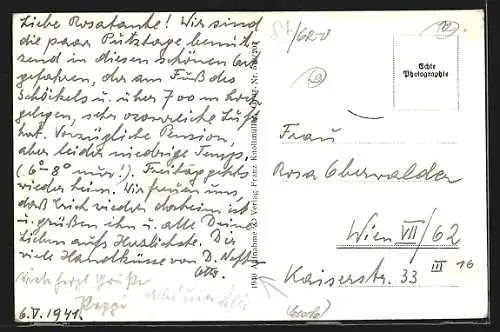 Liebe Rosatante! Wir sind
die paar Putztage benüt-
zend in diesen schönen Ort
gefahren, der am Fuß des
Schöckels u. über 700 m hoch
gelegen, sehr ozonreiche Luft
hat. Vorzügliche Pension,
aber leider niedrige Temp.
(6°-8° nur!). Freitag gehts
wieder heim. Wir freuen uns
daß Erich wieder daheim ist
u. grüßen ihn u. alle Deine
Lieben aufs Herzlichste. Dir
viele Handküsse von D. Neffen
Otto.
Viele herzl Grüße
Peppi
6.V.1941.
1940 Aufnahme u. Verlag Franz Knollmüller, Graz
Echte
Photographie
Frau
Rosa Oberwalder
Wien VII/62
Kaiserstr. 33 III 16